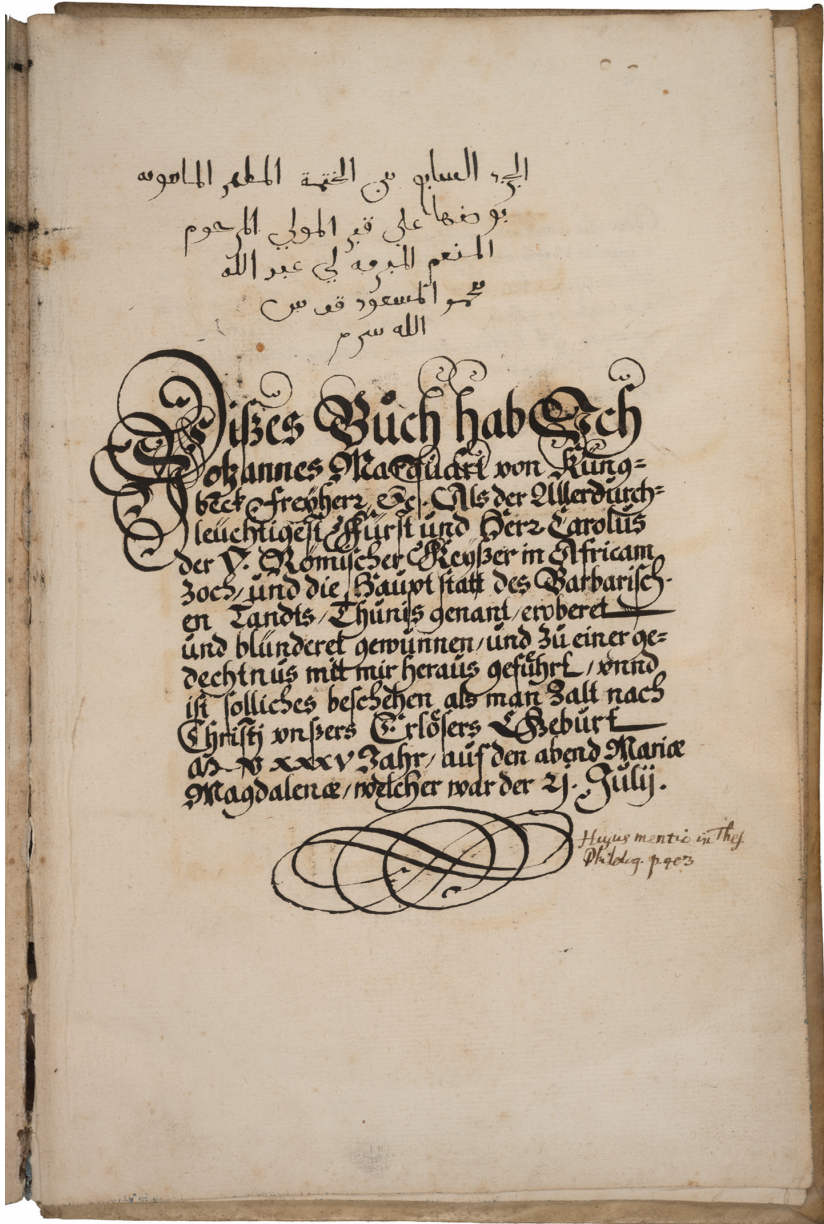 الجزء السابع من الختمة المطهر
على قبر المولى المرحوم
المنعم عبد الله
محمد المسعود
الله
Dißes Bůch hab Ich
Johannes Marquardt von Küng-
beck Freyherr, Als der Allerdurch-
leüchtigest Fürst und Herr Carolus
der V. Römischer Keyßer in Africam
zoch, und die Hauptstatt des Barbarisch-
en Landts, Thunis genant, eroberet
und blünderet gewunnen, und zů einer ge-
dechtnüs mitt mir heraus geführt, vnnd
ist solliches beschehen, als man Zalt nach
Christj vnßers Erlösers Gebürt
M D XXXV Jahr, auf den abend Mariæ
Magdalenæ, welcher war der 21. Julij.
Hujus mentio in Thes
Philolog. p. 903